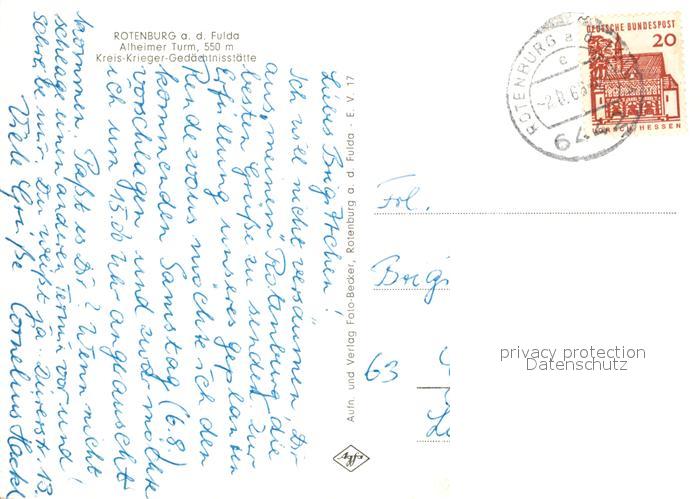 ROTENBURG a. d. Fulda
Alheimer Turm, 550 m
Kreis-Krieger-Gedächtnisstätte
Liebes Brigittchen!
Ich will nicht versäumen, Dir
aus meinem Rotenburg die
besten Grüße zu senden. Zur
Erfüllung unseres geplanten
Rendezvous möchte ich den
kommenden Samstag (6.8.)
vorschlagen und zwar möchte
ich um 15.00 Uhr
kommen. Paßt es Dir? Wenn nicht
schlage einen anderen Termin vor und
schreibe mir. Du weißt ja: Dürerstr. 13.
Viele Grüße Cornelius Hackl
Aufn. und Verlag Foto-Becker, Rotenburg a. d. Fulda - E. V. 17
Agfa
DEUTSCHE BUNDESPOST
20
LORSCH/HESSEN
ROTENBURG a. d.
e
64
Frl.
Brigi
63
privacy protection
Datenschutz